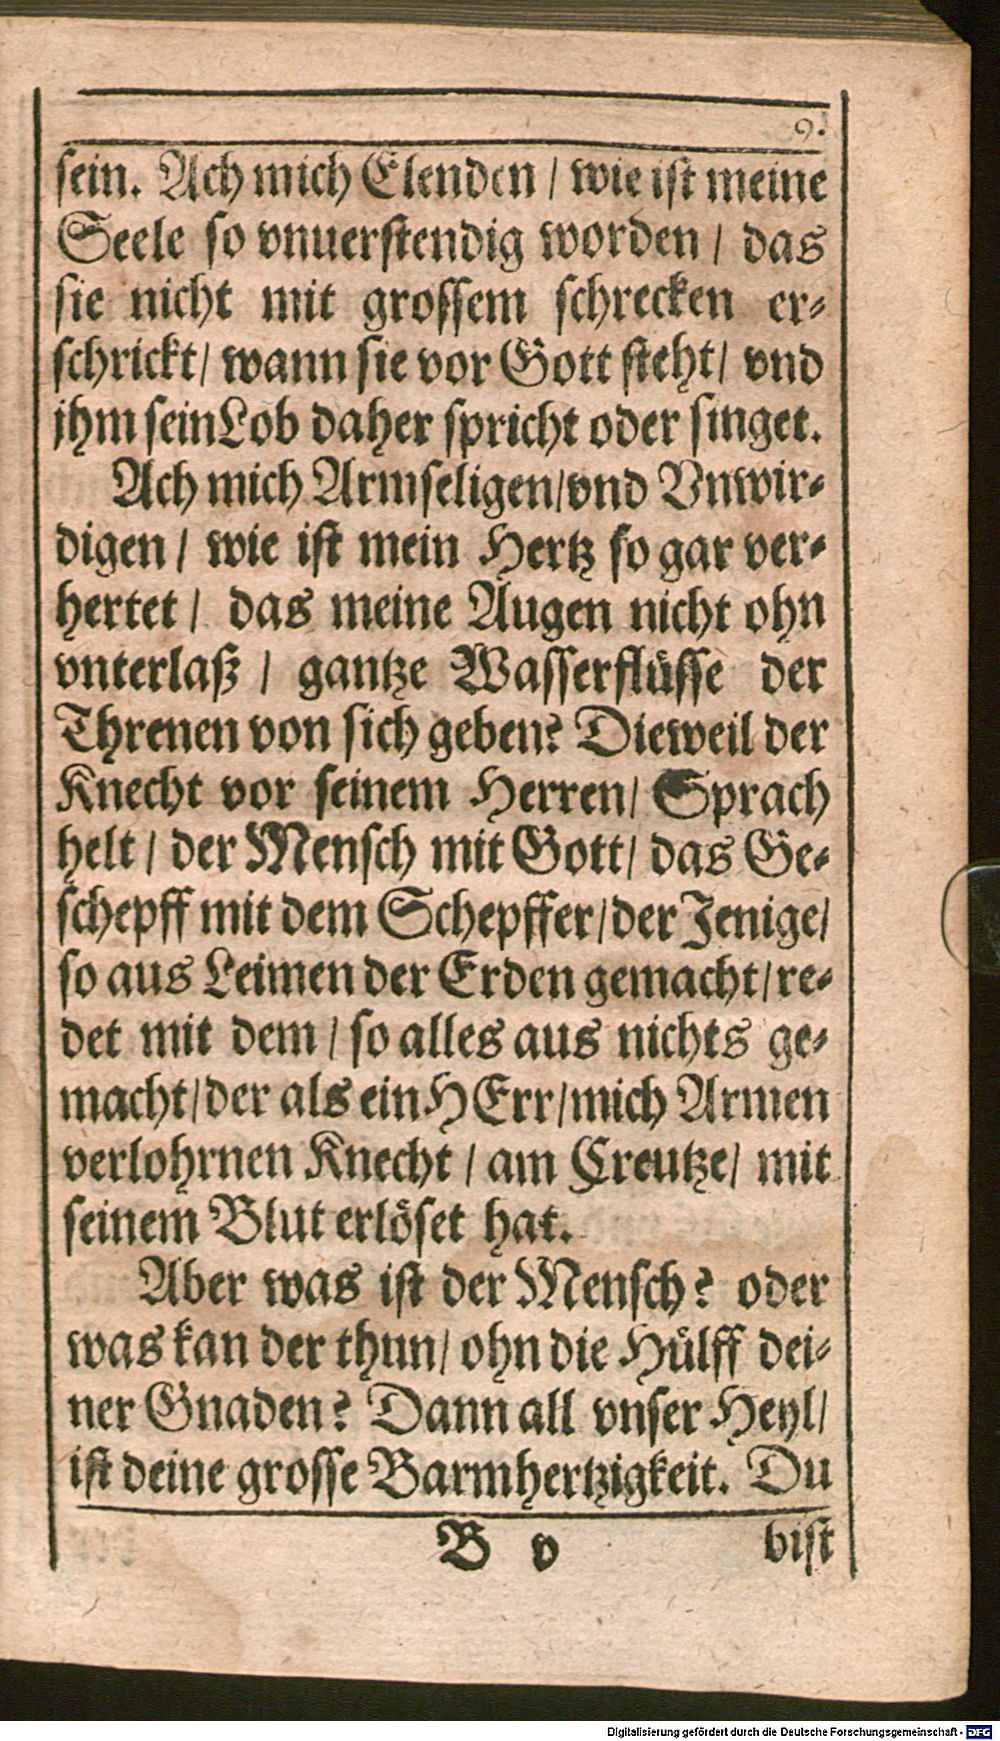 9.
sein. Ach mich Elenden / wie ist meine
Seele so vnuerstendig worden / das
sie nicht mit grossem schrecken er-
schrickt / wann sie vor Gott steht / vnd
jhm sein Lob daher spricht oder singet.
Ach mich Armseligen / vnd Vnwir-
digen / wie ist mein Hertz so gar ver-
hertet / das meine Augen nicht ohn
vnterlaß / gantze Wasserflüsse der
Threnen von sich geben? Dieweil der
Knecht vor seinem Herren / Sprach
helt / der Mensch mit Gott / das Ge-
schepff mit dem Schepffer / der Jenige /
so aus Leimen der Erden gemacht / re-
det mit dem / so alles aus nichts ge-
macht / der als ein HErr / mich Armen
verlohrnen Knecht / am Creutze / mit
seinem Blut erlöset hat.
Aber was ist der Mensch? oder
was kan der thun / ohn die Hülff dei-
ner Gnaden? Dann all vnser Heyl /
ist deine grosse Barmhertzigkeit. Du
B v bist
Digitalisierung gefördert durch die Deutsche Forschungsgemeinschaft - DFG